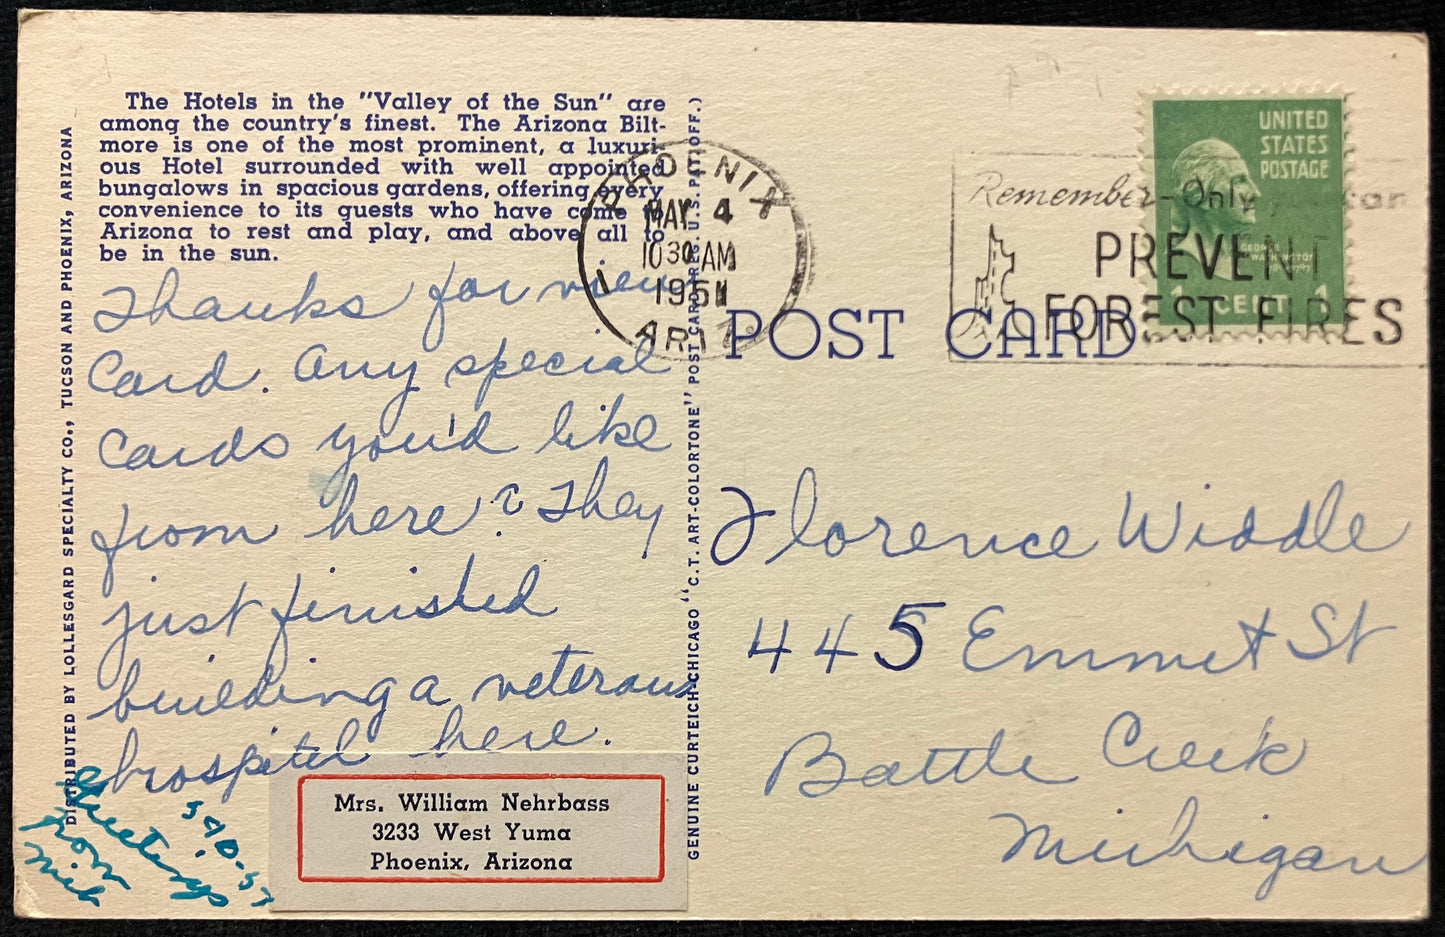 The Hotels in the "Valley of the Sun" are
among the country's finest. The Arizona Bilt-
more is one of the most prominent, a luxuri-
ous Hotel surrounded with well appointed
bungalows in spacious gardens, offering every
convenience to its guests who have come to
Arizona to rest and play, and above all to
be in the sun.
Thanks for view
Card. Any special
Cards you'd like
from here? They
just finished
building a veterans
hospital here.
Greetings
from
Mrs. William Nehrbass
3233 West Yuma
Phoenix, Arizona
DISTRIBUTED BY LOLLESGARD SPECIALTY CO., TUCSON AND PHOENIX, ARIZONA
GENUINE CURTEICH-CHICAGO "C.T. ART-COLORTONE" POST CARD (REG. U.S. PAT. OFF.)
PHOENIX
MAY 4
10 30 AM
1951
ARIZ.
Remember-Only you can
PREVENT
FOREST FIRES
UNITED
STATES
POSTAGE
GEORGE
WASHINGTON
1 CENT 1
POST CARD
Florence Widdle
445 Emmet St
Battle Creek
Michigan